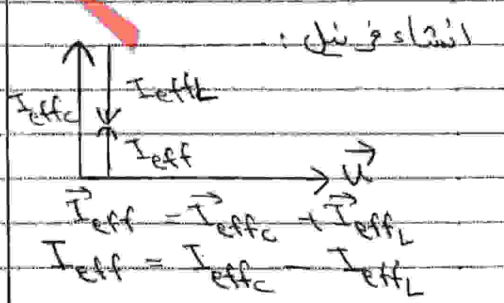 انشاء فرنيل :
I_effc
I_effL
I_eff
u⃗
I⃗_eff = I⃗_effc + I⃗_effL
I_eff = I_effc - I_effL